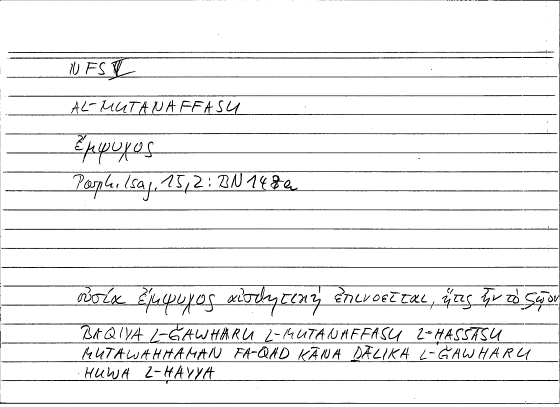 NFS V
AL-MUTANAFFASU
ἔμψυχος
Porph. Isag. 15,2: BN 148a
οὐσία ἔμψυχος αἰσθητική ἐπινοεῖται, ἥτις ἦν τὸ ζῷον
BAQIYA L-ǦAWHARU L-MUTANAFFASU L-ḤASSĀSU
MUTAWAHHAMAN FA-QAD KĀNA ḎĀLIKA L-ǦAWHARU
HUWA L-ḤAYYA